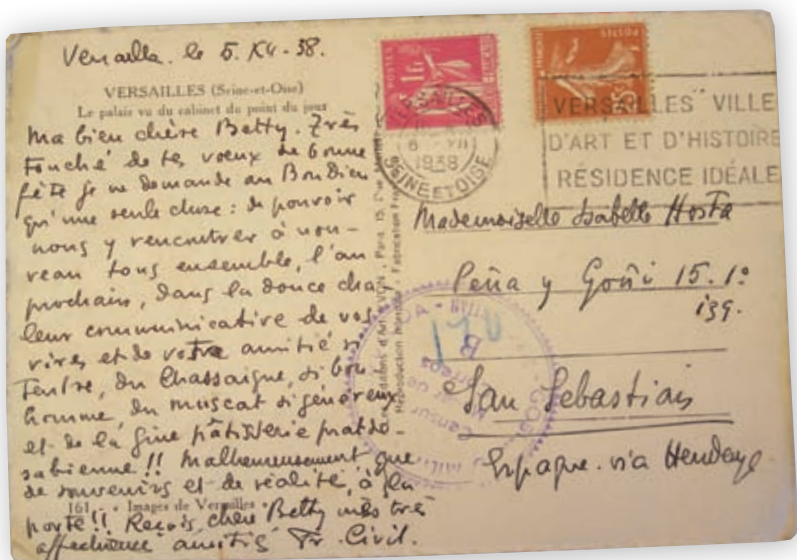 Versailles. le 5. XII-38.
VERSAILLES (Seine-et-Oise)
Le palais vu du cabinet du point du jour
Ma bien chère Betty. Très
touché de tes voeux de bonne
fête je ne demande au Bondieu
qu'une seule chose : de pouvoir
nous y rencontrer à nou-
veau tous ensemble, l'an
prochain, dans la douce cha-
leur communicative de vos
rires et de votre amitié si
tendre, du Chassaigne, si bon
homme, du muscat si généreux
et de la fine pâtisserie
!! Malheureusement que
de souvenirs et de réalité, à la
porte !! Reçois, chère Betty mes très
affectueuses amitiés Fr. Civil.
161. - Images de Versailles
POSTES
VERSAILLES
6 - XII
1938
SEINE ET OISE
VERSAILLES VILLE
D'ART ET D'HISTOIRE
RÉSIDENCE IDÉALE
Mademoiselle Isabelle Hosta
Peña y Goñi 15. 1º
izq.
San Sebastian
Espagne. via Hendaye
170
B